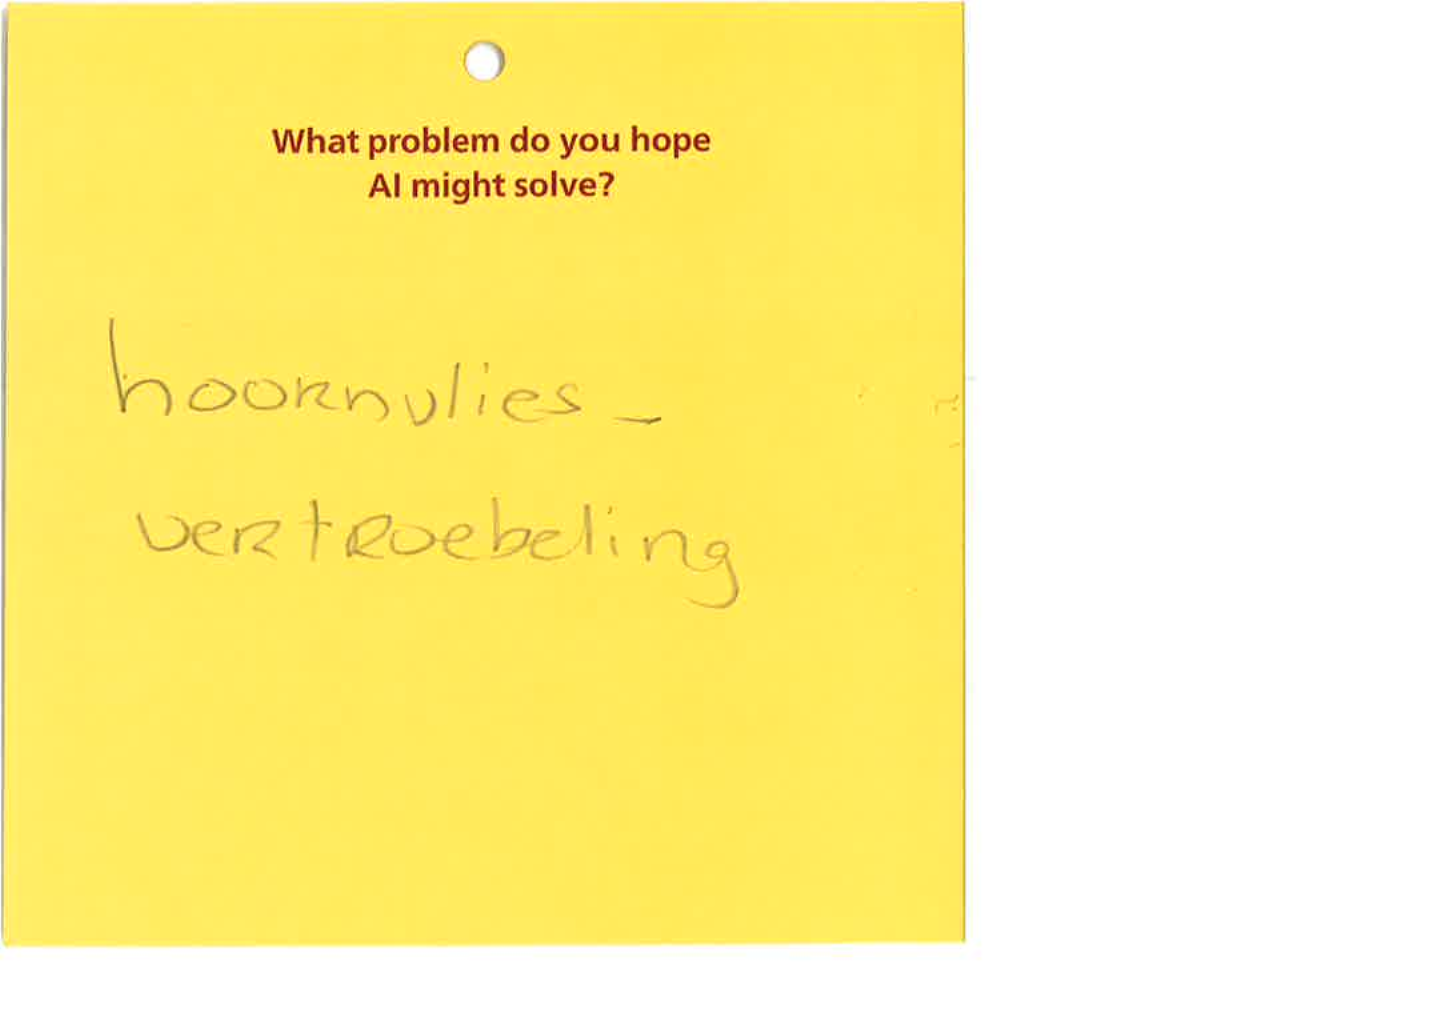 What problem do you hope
AI might solve?
hoornvlies-
vertroebeling